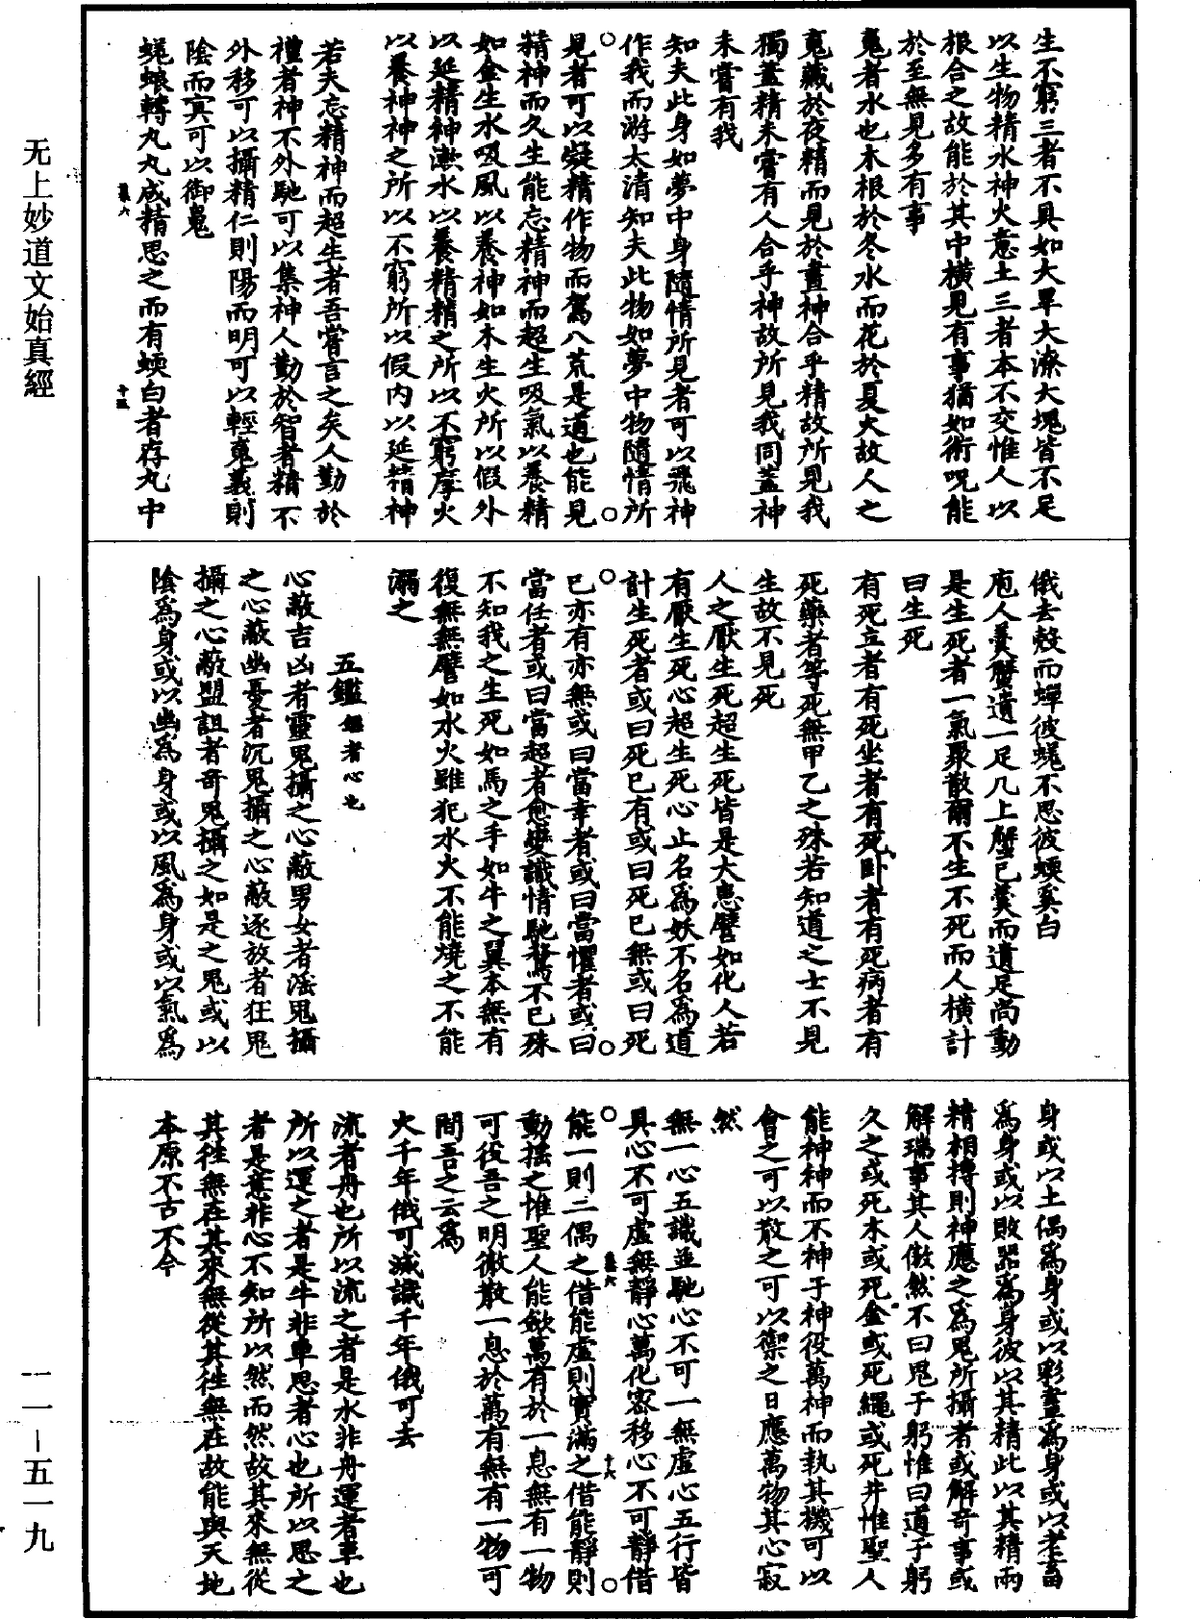 无上妙道文始真經
一一—五一九
生不窮三者不具如大旱大潦大塊皆不足
以生物精水神火意土三者本不交惟人以
根合之故能於其中橫見有事猶如術呪能
於至無見多有事
䰟者木也木根於冬水而花於夏火故人之
䰟藏於夜精而見於晝神合乎精故所見我
獨蓋精未嘗有人合乎神故所見我同蓋神
未嘗有我
知夫此身如夢中身隨情所見者可以飛神
作我而游太清知夫此物如夢中物隨情所
見者可以凝精作物而駕八荒是道也能見
精神而久生能忘精神而超生吸氣以養精
如金生水吸風以養神如木生火所以假外
以延精神漱水以養精精之所以不窮摩火
以養神神之所以不窮所以假內以延精神
若夫忘精神而超生者吾嘗言之矣人勤於
禮者神不外馳可以集神人勤於智者精不
外移可以攝精仁則陽而明可以輕䰟義則
陰而冥可以御魄
蜣蜋轉丸丸成精思之而有蝡白者存丸中
十五
俄去殼而蟬彼蜣不思彼蝡奚白
庖人羹蟹遺一足几上蟹已羹而遺足尚動
是生死者一氣聚散爾不生不死而人橫計
曰生死
有死立者有死坐者有死臥者有死病者有
死藥者等死無甲乙之殊若知道之士不見
生故不見死
人之厭生死超生死皆是大患譬如化人若
有厭生死心超生死心止名為妖不名為道
計生死者或曰死已有或曰死已無或曰死
已亦有亦無或曰當幸者或曰當懼者或曰
當任者或曰當超者愈變識情馳騖不已殊
不知我之生死如馬之手如牛之翼本無有
復無無譬如水火雖犯水火不能燒之不能
溺之
五鑑 鑑者心也
心蔽吉凶者靈鬼攝之心蔽男女者淫鬼攝
之心蔽幽憂者沉鬼攝之心蔽逐放者狂鬼
攝之心蔽盟詛者奇鬼攝之如是之鬼或以
陰為身或以幽為身或以風為身或以氣為
身或以土偶為身或以彩畫為身或以老畜
為身或以敗器為身彼以其精此以其精兩
精相搏則神應之為鬼所攝者或解奇事或
解瑞事其人傲然不曰鬼于躬惟曰道于躬
久之或死木或死金或死繩或死井惟聖人
能神神而不神于神役萬神而執其機可以
會之可以散之可以禦之日應萬物其心寂
然
無一心五識並馳心不可一無虛心五行皆
具心不可虛無靜心萬化密移心不可靜借
十六
能一則二偶之借能虛則實滿之借能靜則
動搖之惟聖人能斂萬有於一息無有一物
可役吾之明徹散一息於萬有無有一物可
間吾之云為
火千年俄可滅識千年俄可去
流者舟也所以流之者是水非舟運者車也
所以運之者是牛非車思者心也所以思之
者是意非心不知所以然而然故其來無從
其往無在其來無從其往無在故能與天地
本原不古不今